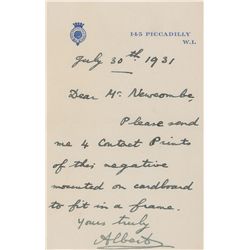 145 PICCADILLY
W.1.
July 30th 1931
Dear Mr. Newcombe,
Please send
me 4 Contact Prints
of this negative
mounted on cardboard
to fit in a frame.
Yours truly
Albert